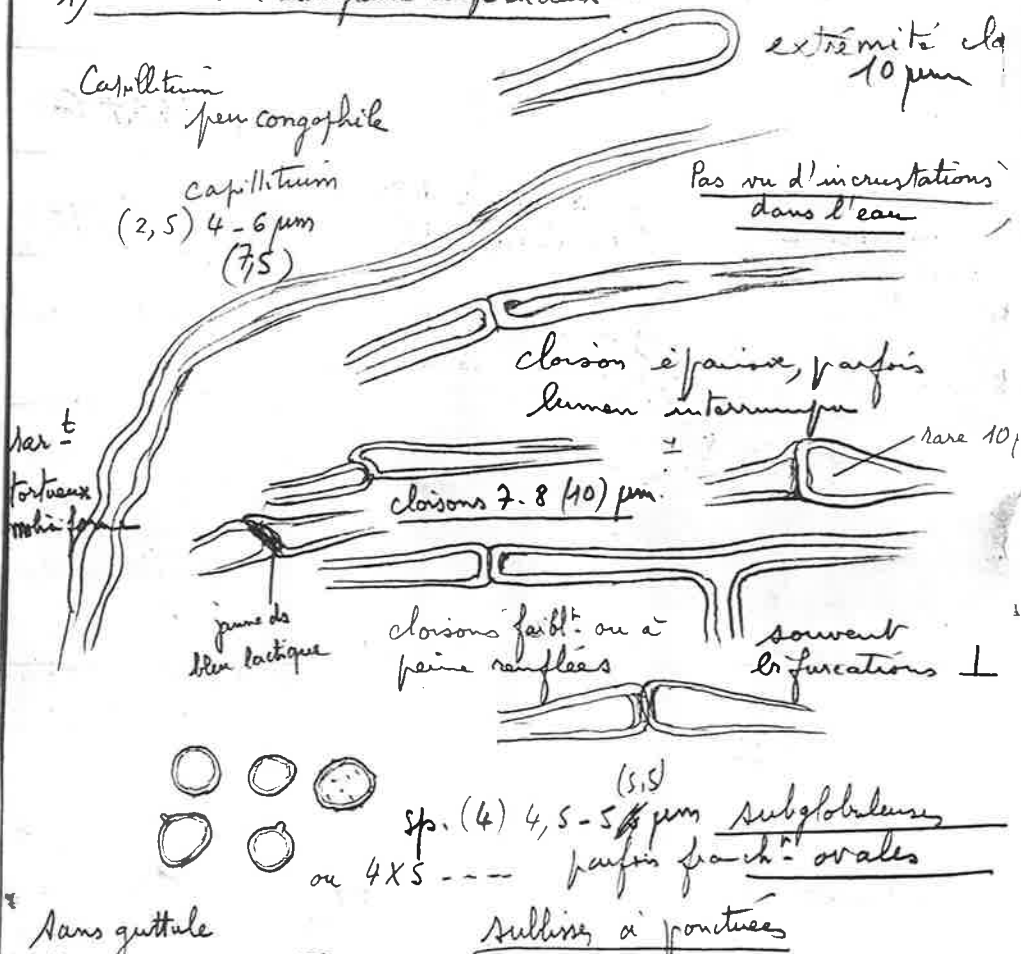 extrémité
10 µm
Capillitium
peu congophile
capillitium
(2,5) 4-6 µm
(7,5)
Pas vu d'incrustations
dans l'eau
cloison épaisse, parfois
lumen interrompu
rart
tortueux
rare 10µ
cloisons 7-8 (10) µm.
jaune ds
bleu lactique
cloisons faiblt ou à
peine renflées
souvent
bifurcations ⊥
(5,5)
sp. (4) 4,5-5 µm subglobuleuses
ou 4X5 ---- parfois francht ovales
sans guttule
sublisses à ponctuées